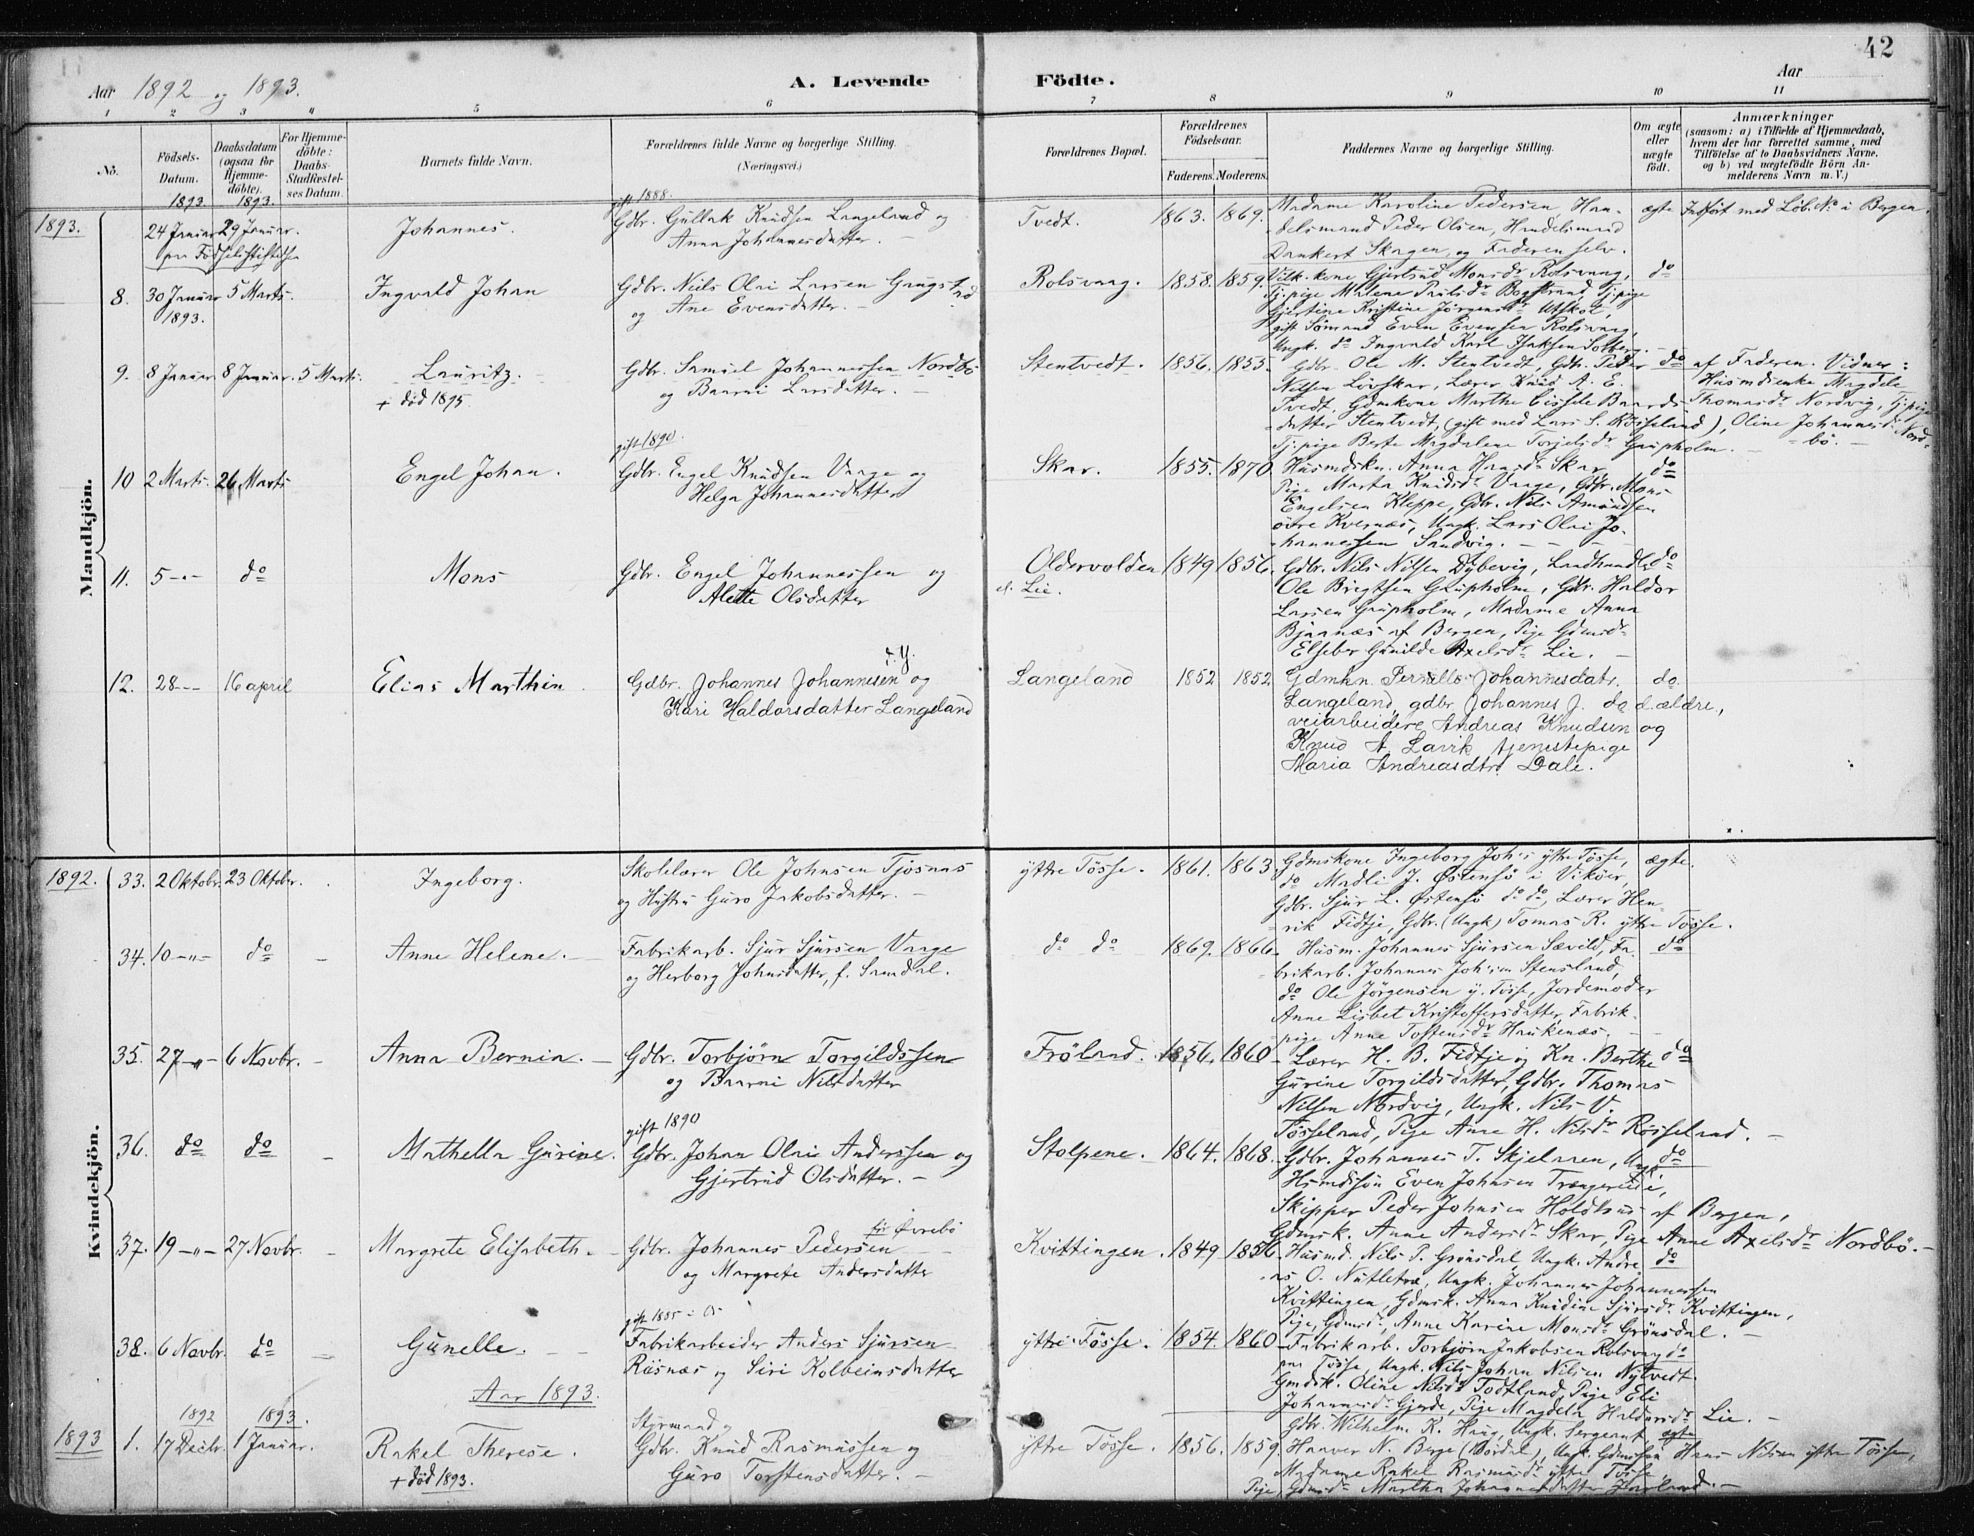 42
Aar 1892 og 1893.
A. Levende Födte.
Aar
1 2 3 4 5 6 7 8 9 10 11
No.
Födsels-Datum.
Daabsdatum (ogsaa for Hjemmedöbte).
For Hjemmedöbte: Daabs-Stadfæstelses Datum.
Barnets fulde Navn.
Forældrenes fulde Navne og borgerlige Stilling. (Næringsvei.)
Forældrenes Bopæl.
Forældrenes Födselsaar.
Faderens. Moderens.
Faddernes Navne og borgerlige Stilling.
Om ægte eller uægte födt.
Anmærkninger
(saasom: a) i Tilfælde af Hjemmedaab, hvem der har forrettet samme, med Tilföielse af to Daabsvidners Navne, og b) ved uægtefödte Börn Anmelderens Navn m. V.)
Mandkjön.
1893. 1893.
1893.
24 Januar 29 Januar.
Johannes.
gift 1888.
Gdbr. Gullak Knudsen Langeland og
Anna Johannesdatter. -
Tvedt. 1863. 1869.
Madame Karoline Pedersen, Han-
delsmand Peder Olsen, Handelsmand
Dankert Skagen, og Faderen selv.
ægte
Indfört med Löb. No i Bergen.
8. 30 Januar 5 Marts.
1893.
Ingvald Johan
Gdbr. Neils Olai Larsen Gaugstad
og Ane Evensdatter. -
Rolsvaag. 1858. 1859.
kone Gjertrud Monsdr Rolsvaag,
Tj.pige Malene Pedersdr Bogstrand, Tj.pige
Gjertine Kristine Jörgensdr Utskot,
gift Sömand Even Evensen Rolsvaag,
Ungk. do Ingvald Karl Isaksen Solberg. -
do
9. 8 Januar 8 Januar. 5 Marts.
Lauritz.
+ död 1895.
Gdbr. Samuel Johannessen Nordbö
og Baarni Larsdatter. -
Stentvedt. 1856. 1855.
Gdbr. Ole M. Stentvedt, Gdbr. Peder
Nilsen Lövskar, Lærer Knud A. E.
Tvedt, Gdmkone Marthe Cissele Baards-
datter Stentvedt, (gift med Lars S. Rösseland),
Tj.pige Berte Magdalene Torjelsdr Gripholm. -
do
af Faderen. Vidner:
Husmdsenke Magdele
Thomasdr Nordvig, Tj.pige
Oline Johannesdr Nord-
bö. -
10 2 Marts. 26 Marts
Engel Johan.
gift 1890.
Gdbr. Engel Knudsen Vaage og
Helga Johannesdatter
Skar. 1855. 1870.
Husmdskn. Anna Hansdr Skar,
Pige Marta Knudsdr Vaage, Gdbr. Mons
Engelsen Kleppe, Gdbr. Nils Amundsen
övre Kvernæs, Ungk. Lars Olai Jo-
hannessen Sandvig. -
do
11. 5 -"- do
Mons
Gdbr. Engel Johannessen og
Alette Olsdatter
Oldervolden
d. Lie.
1849 1856.
Gdbr. Nils Nilsen Dybevig, Landhandler
Ole Brigtsen Gripholm, Gdbr. Haldor
Larsen Gripholm, Madame Anna
Bjarnæs af Bergen, Pige Gdmsdr
Elseber Gunilde Axelsdr Lie. -
do
12. 28 -- 16 april
Elias Marthin.
d.y.
Gdbr. Johannes Johannesen og
Kari Haldorsdatter Langeland
Langeland 1852 1852.
Gdmkn. Pernille Johannesdatr.
Langeland, gdbr. Johannes J. do d. ældre,
veiarbeidere Andreas Knudsen og
Knud A. Lavik tjenestepige
Maria Andreasdtr. Dale.
do.
Kvindekjön.
1892. 33. 2 Oktobr. 23 Oktober.
Ingeborg.
Skolelærer Ole Johnsen Tjosnaas
og Hustru Guro Jakobsdatter. -
yttre Tösse. 1861. 1863
Gdmskone Ingeborg Johs yttre Tösse,
do Madli J. Östensö i Viköer,
Gdbr. Sjur L. Östensö do do, Lærer Hen-
rik Fidtje, Gdbr. (Ungk) Tomas R. yttre Tösse.
ægte.
34. 10 -"- do
Anne Helene. -
Fabrikarb. Sjur Sjursen Vaage
og Herborg Johnsdatter, f. Samdal.
do do 1869. 1866.
Husm. Johannes Sjursen Sævild, Fa-
brikarb. Johannes Johnsen Stensland,
do Ole Jörgensen y. Tösse, Jordemoder
Anne Lisbet Kristoffersdatter, Fabrik-
pige Anne Tostensdr Haukenæs. -
do
35. 27 -"- 6 Novbr.
Anna Bernia. -
Gdbr. Torbjörn Torgildssen
og Baarni Nilsdatter
Fröland. 1856. 1860
Lærer H. B. Fidtje og Kn. Berthe
Gurine Torgildsdatter, Gdbr. Thomas
Nilsen Nordvig, Ungk. Nils V.
Tösseland, Pige Anne H. Nilsdr Rösseland. -
do
36. do do
Mathella Gurine.
gift 1890
Gdbr. Johan Olai Anderssen og
Gjertrud Olsdatter. -
Stolpene. 1864. 1868.
Gdbr. Johannes T. Skjelaaen, Ungk.
Husmdssön Even Johnsen Trængereide,
Skipper Peder Johnsen Holdhus af Bergen,
Gdmsk. Anne Andersdr Skar, Pige Anne Axelsdr Nordbö. -
do
37. 19 -"- 27 Novbr.
Margrete Elisabeth. -
för Övrebö
Gdbr. Johannes Pedersen
og Margrete Andersdatter
Kvittingen. 1849. 1856.
Husmd. Nils P. Grönsdal, Ungk. Andre-
as O. Nutletræ, Ungk. Johannes Johannessen
Kvittingen, Gdmsk. Anna Knudine Sjursdr Kvittingen,
Pige, Gdmsdr, Anne Karine Monsdr Grönsdal. -
do
38. 6 Novbr. do
Gunelle. -
gift 1885
Fabrikarbeider Anders Sjursen
Risnæs og Siri Kolbeinsdatter
yttre Tösse. 1854. 1860
Fabrikarb. Torbjörn Jakobsen Rolsvaag
paa Tösse, Ungk. Nils Johan Nilsen Nytvedt
Gmdsk. Oline Nilsdr Todtland, Pige Eli
Johannesdr Gjerde, Pige Magdela Haldorsdr Lie. -
do
Aar 1893.
1892 1893.
1893 1. 17 Decbr. 1 Januar.
Rakel Therese.
+ död 1893.
Styrmand og
Gdbr. Knud Rasmussen og
Guro Torstensdatter. -
yttre Tösse. 1856. 1859.
Gdbr. Wilhelm K. Haug, Ungk. Sergeant,
Haaver N. Berge (Nordal), Ungk. Gdmssön Hans Nilsen yttre Tösse,
Madame Rakel Rasmusdr yttre Tösse,
Pige, Gdmsdr Martha Johannesdatter. -
ægte